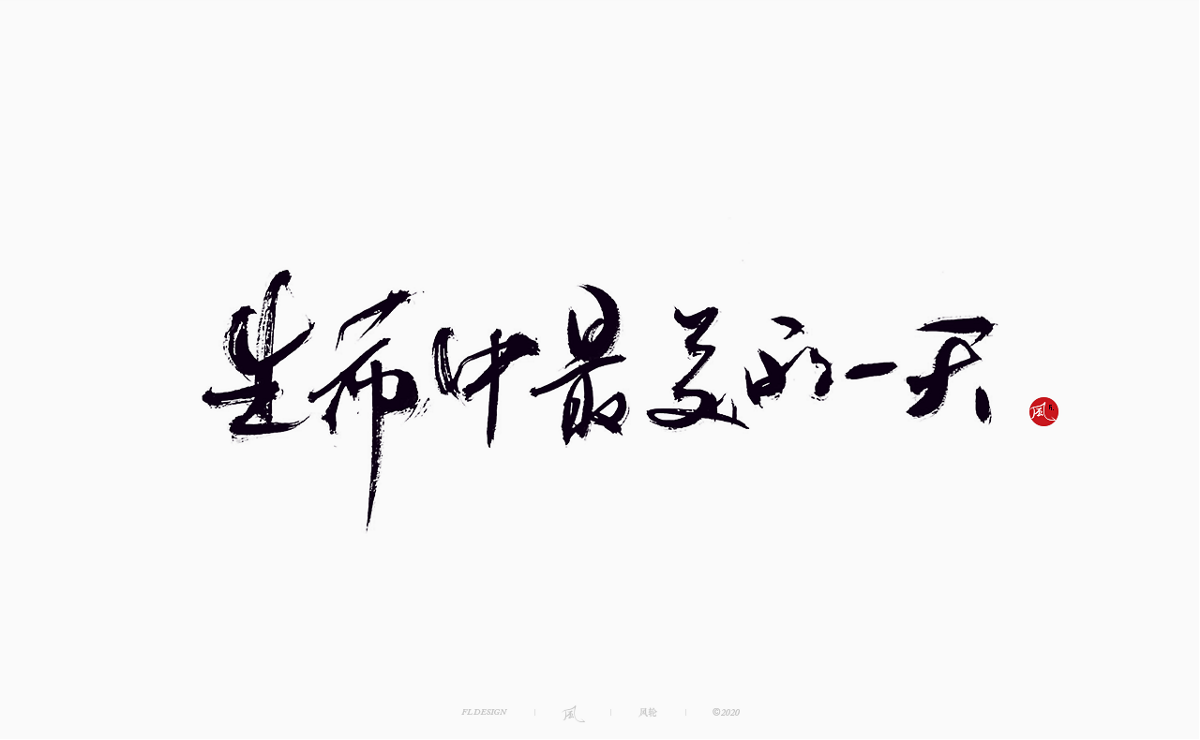 生命中最美的一天
風
FL.DESIGN | 風 | 风轮 | ©2020